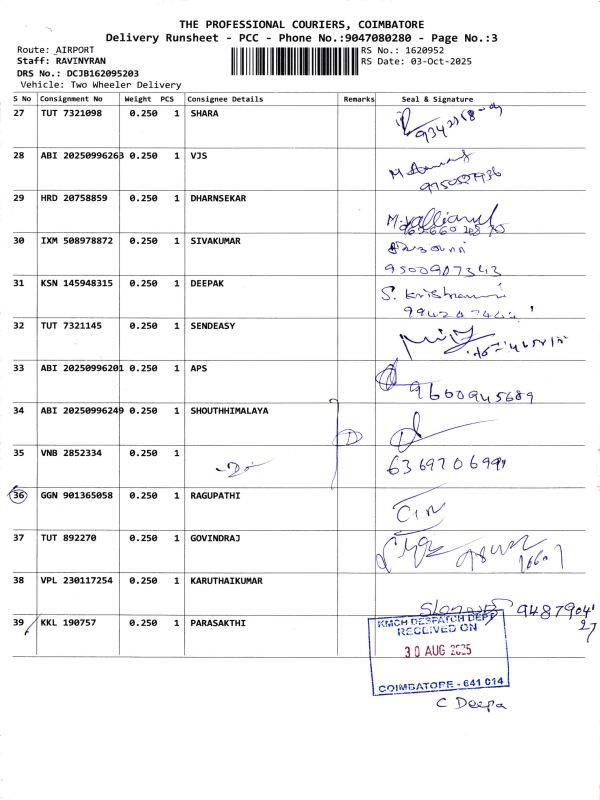 THE PROFESSIONAL COURIERS, COIMBATORE
Delivery Runsheet - PCC - Phone No.:9047080280 - Page No.:3
Route: AIRPORT RS No.: 1620952
Staff: RAVINYRAN RS Date: 03-Oct-2025
DRS No.: DCJB162095203
Vehicle: Two Wheeler Delivery
S No Consignment No Weight PCS Consignee Details Remarks Seal & Signature
27 TUT 7321098 0.250 1 SHARA
28 ABI 20250996263 0.250 1 VJS
29 HRD 20758859 0.250 1 DHARNSEKAR
30 IXM 508978872 0.250 1 SIVAKUMAR
9500907343
31 KSN 145948315 0.250 1 DEEPAK
32 TUT 7321145 0.250 1 SENDEASY
33 ABI 20250996201 0.250 1 APS
9600945689
34 ABI 20250996249 0.250 1 SHOUTHHIMALAYA
35 VNB 2852334 0.250 1
36 GGN 901365058 0.250 1 RAGUPATHI
37 TUT 892270 0.250 1 GOVINDRAJ
38 VPL 230117254 0.250 1 KARUTHAIKUMAR
39 KKL 190757 0.250 1 PARASAKTHI
KMCH DESPATCH DEPT
RECEIVED ON
30 AUG 2025
COIMBATORE - 641 014
C Deepa